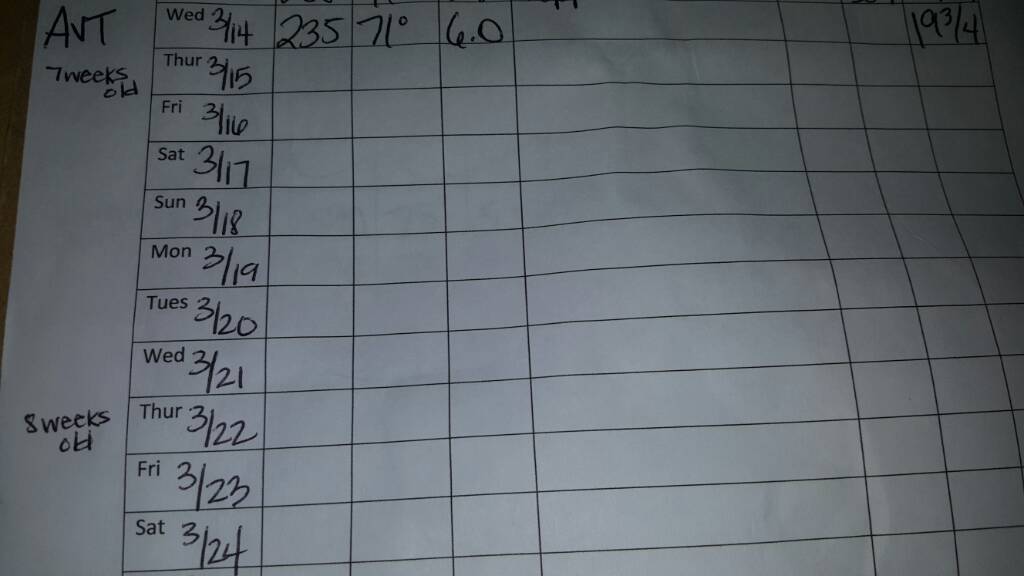 AVT Wed 3/14 235 71° 6.0 19 3/4
7 weeks old Thur 3/15
Fri 3/16
Sat 3/17
Sun 3/18
Mon 3/19
Tues 3/20
Wed 3/21
8 weeks old Thur 3/22
Fri 3/23
Sat 3/24